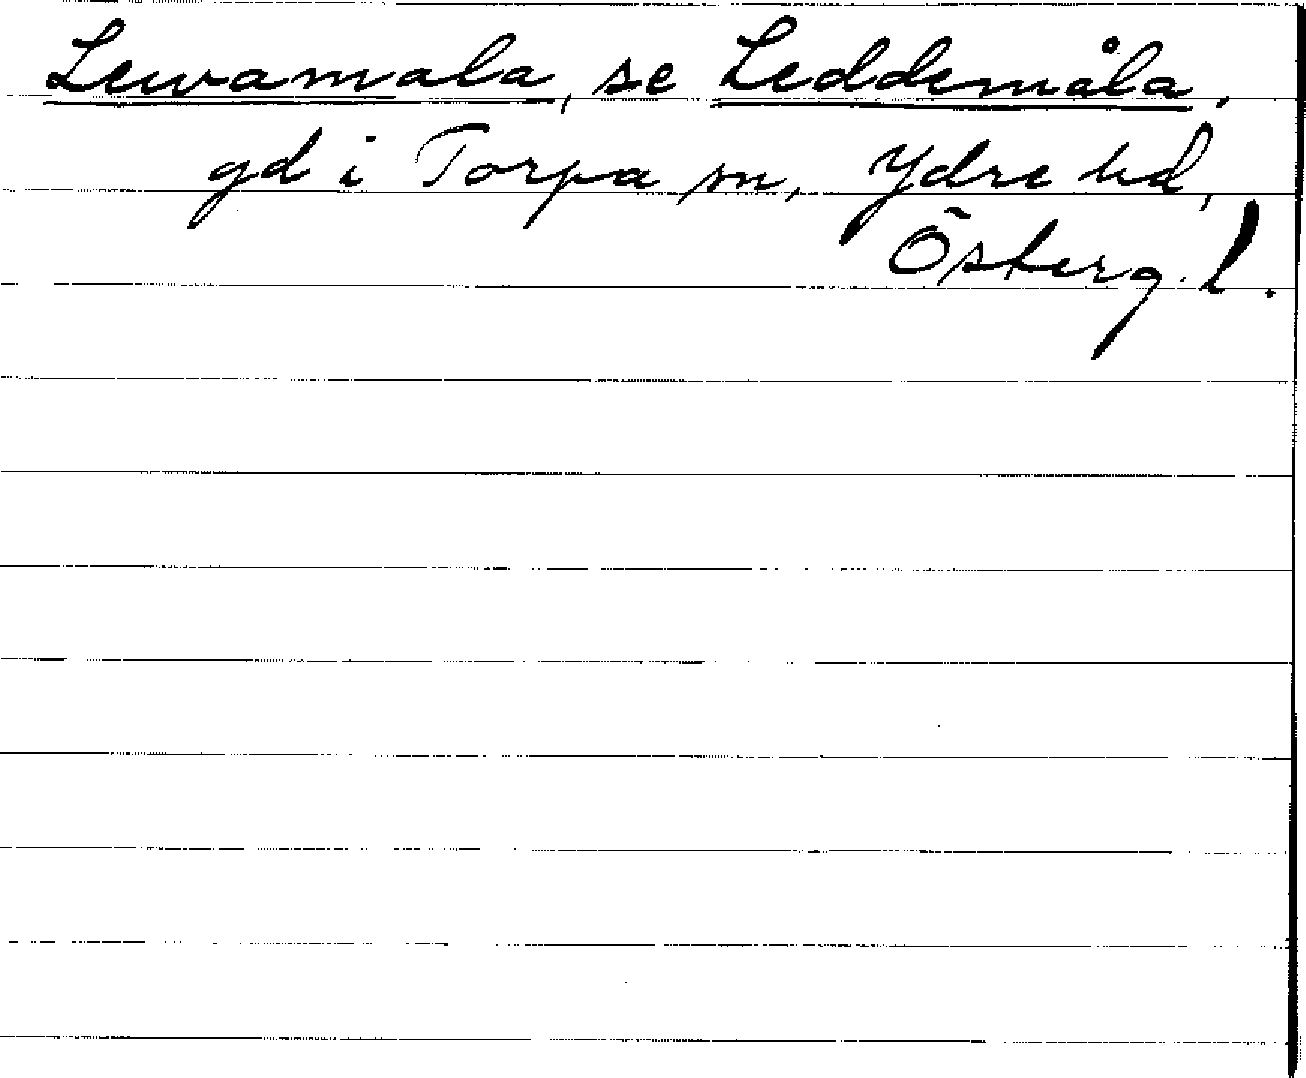 Lewamala, se Leddemåla,
gd i Torpa sn, Ydre hd,
Österg. l.